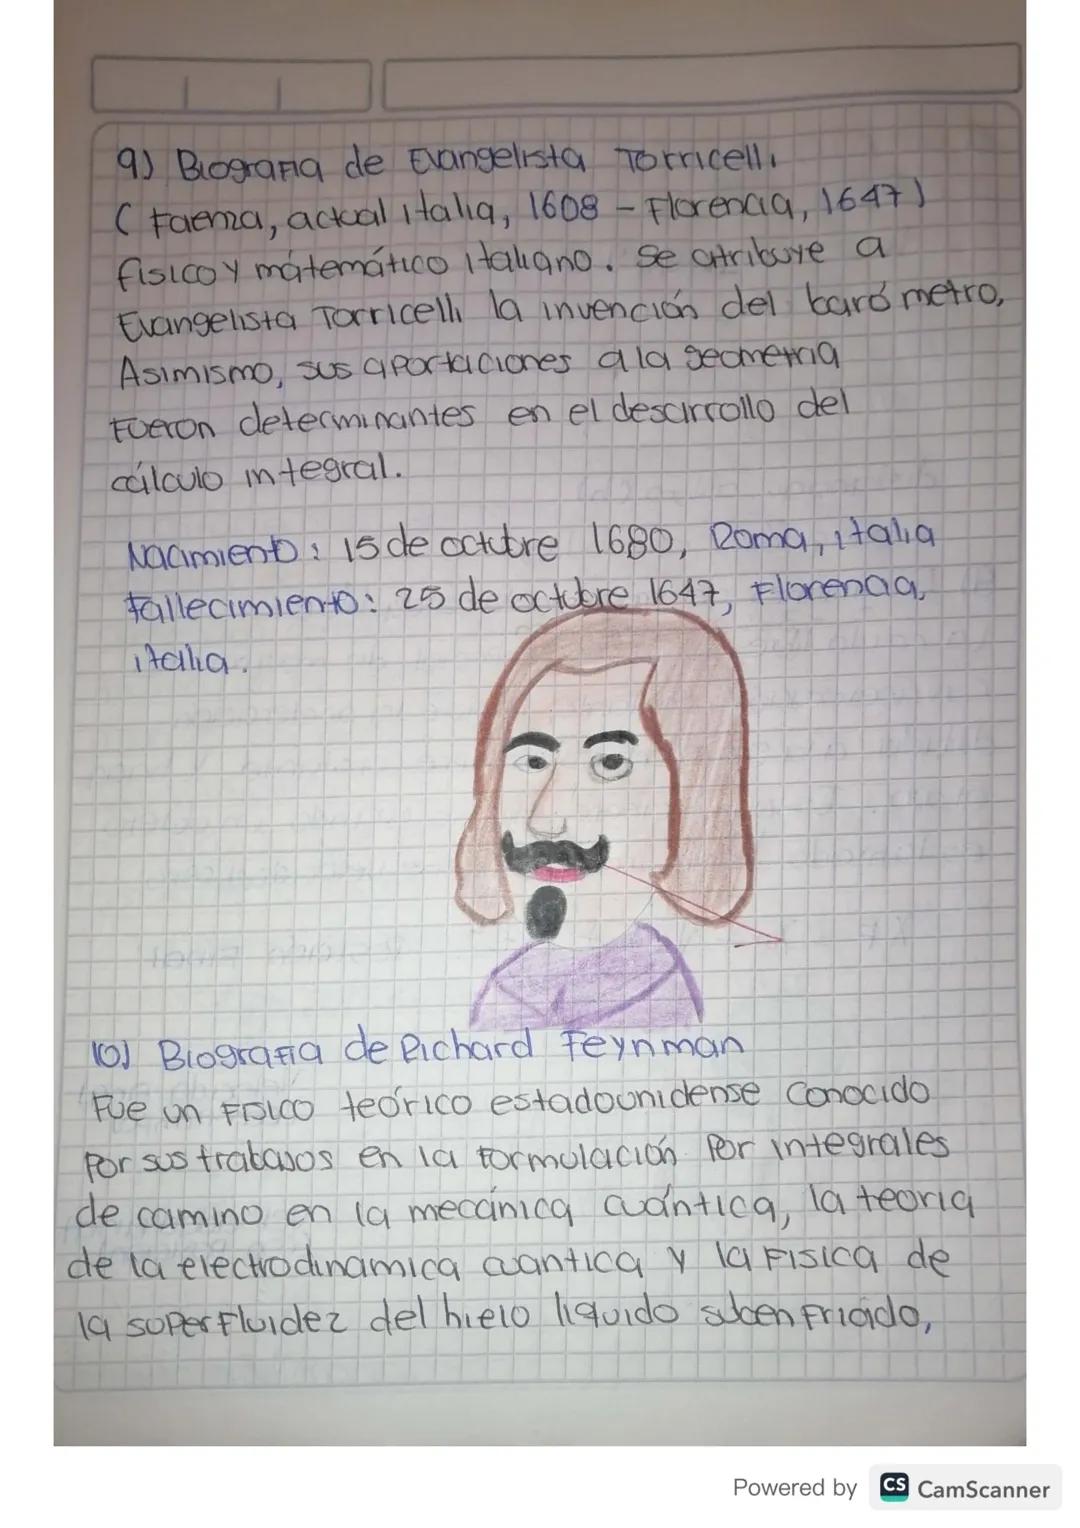 9) Biografia de Evangelista Torricelli
( Faenza, actual italia, 1608 - Florencia, 1647)
fisico y mátemático italiano. Se atribuye a
Evangelista Torricelli la invención del barómetro,
Asimismo, sus aportaciones a la geometria
Fueron determinantes en el desarrollo del
cálculo integral.
Nacimiento: 15 de octubre 1680, Roma, italia
Fallecimiento: 25 de octubre 1647, Florencia,
italia.
10) Biografia de Richard Feynman
Fue un Fisico teórico estadounidense conocido
Por sus trabajos en la formulación Por integrales
de camino en la mecánica cuántica, la teoria
de la electrodinamica cuantica y la Fisica de
la superfluidez del hielo liquido subenfriado,
Powered by CS CamScanner